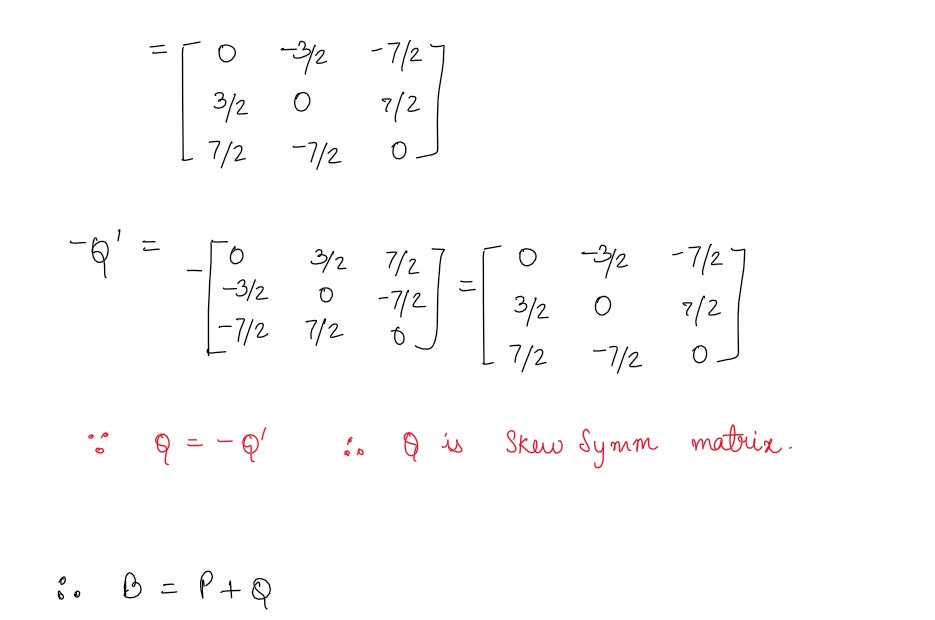 = [ 0 -3/2 -7/2
3/2 0 7/2
7/2 -7/2 0 ]
-Q' = - [ 0 3/2 7/2 ] = [ 0 -3/2 -7/2
-3/2 0 -7/2 3/2 0 7/2
-7/2 7/2 0 7/2 -7/2 0 ]
∵ Q = -Q' ∴ Q is Skew Symm matrix.
∴ B = P + Q